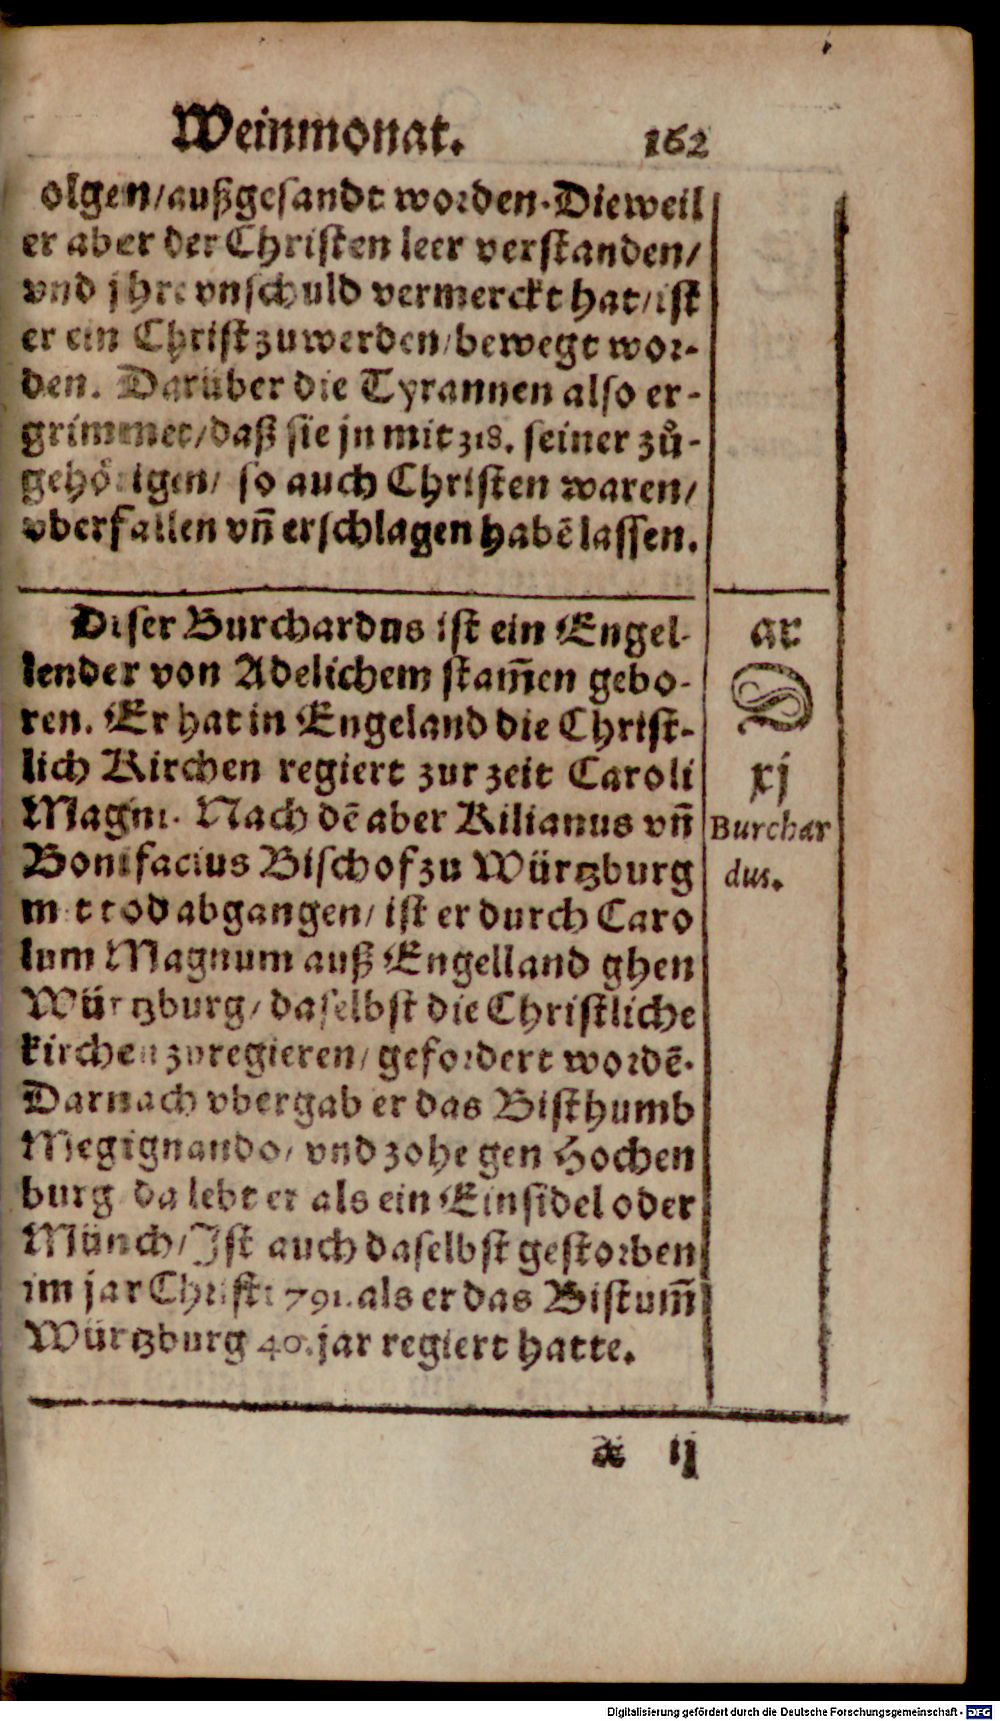 Weinmonat. 162
olgen/außgesandt worden. Dieweil
er aber der Christen leer verstanden/
vnd jhre vnschuld vermerckt hat/ist
er ein Christ zuwerden/bewegt wor-
den. Darüber die Tyrannen also er-
grimmet/daß sie jn mit 318. seiner zů-
gehörigen/ so auch Christen waren/
vberfallen vn̄ erschlagen habē lassen.
Diser Burchardus ist ein Engel-
lender von Adelichem stam̄en gebo-
ren. Er hat in Engeland die Christ-
lich Kirchen regiert zur zeit Caroli
Magni. Nach dē aber Kilianus vn̄
Bonifacius Bischof zu Würtzburg
mit tod abgangen/ ist er durch Caro
lum Magnum auß Engelland ghen
Würtzburg/ daselbst die Christliche
kirchen zuregieren/ gefordert wordē.
Darnach vbergab er das Bisthumb
Megignando/ vnd zohe gen Hochen
burg da lebt er als ein Einsidel oder
Münch/Ist auch daselbst gestorben
im jar Christi 791. als er das Bistum̄
Würtzburg 40. jar regiert hatte.
ar
D
xj
Burchar
dus.
ij
Digitalisierung gefördert durch die Deutsche Forschungsgemeinschaft - DFG